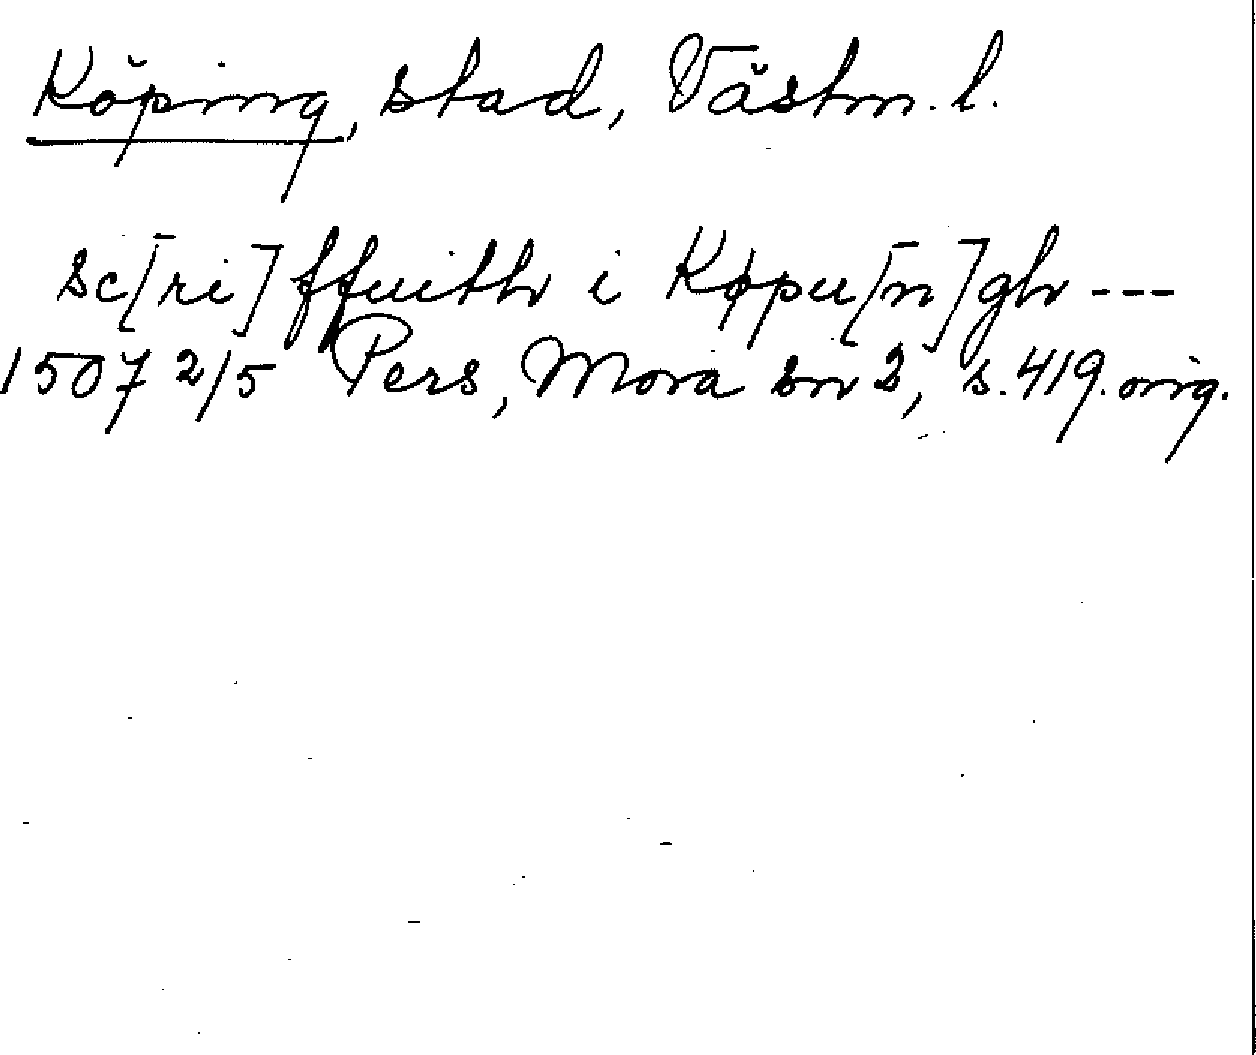 Köping, stad, Västm. l.
sc[ri]ffuith i Køpu[n]gh ---
1507 2/5 Pers, Mora sn 2, s. 419. orig.